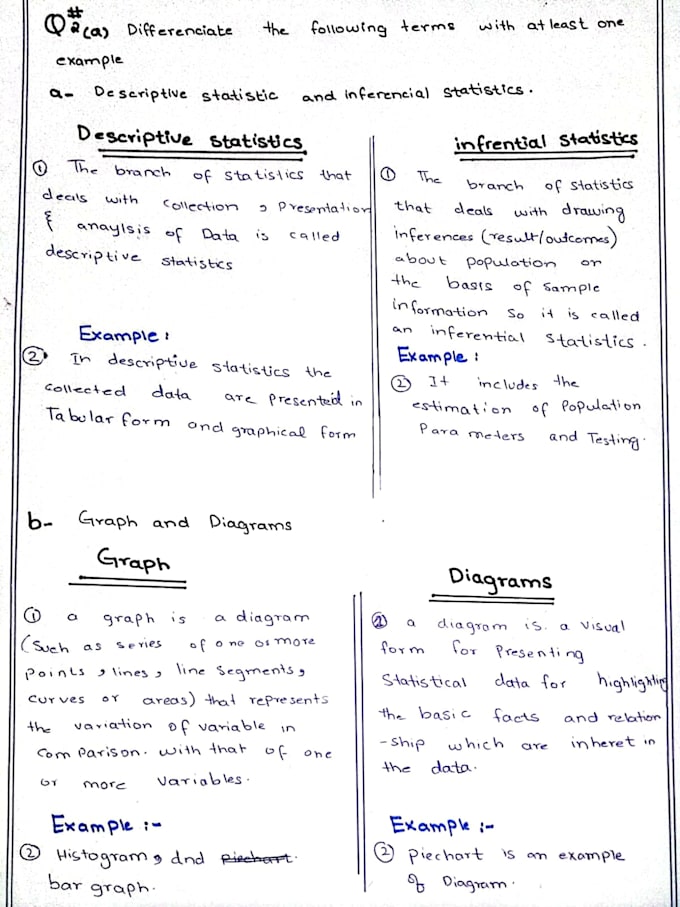 Q#2(a) Differenciate the following terms with at least one
example
a- Descriptive statistic and inferencial statistics.
Descriptive statistics
① The branch of statistics that
deals with collection, Presentation
& anaylsis of Data is called
descriptive statistics
Example:
② In descriptive statistics the
collected data are presented in
Tabular form and graphical form
infrential statistics
① The branch of statistics
that deals with drawing
inferences (result/outcomes)
about population on
the basis of sample
information so it is called
an inferential statistics.
Example:
② It includes the
estimation of Population
Parameters and Testing.
b- Graph and Diagrams
Graph
① a graph is a diagram
(Such as series of one or more
Points, lines, line segments,
curves or areas) that represents
the variation of variable in
comparison. with that of one
or more variables.
Example :-
② Histogram, and piechart.
bar graph.
Diagrams
① a diagram is a visual
form for Presenting
Statistical data for highlighting
the basic facts and relation
-ship which are inheret in
the data.
Example :-
② piechart is an example
of Diagram.